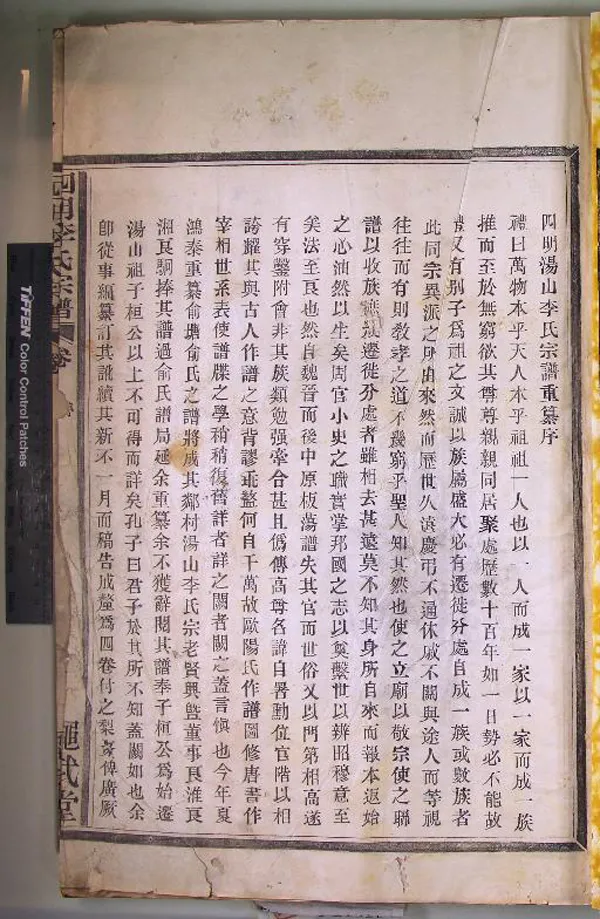 四明湯山李氏宗譜重纂序
禮曰萬物本乎天人本乎祖祖一人也以一人而成一家以一家而成一族
推而至於無窮欲其尊尊親親同居聚處歷數十百年如一日勢必不能故
禮又有別子爲祖之文誠以族屬盛大必有遷徙分處自成一族或數族者
此同宗異派之所由來然而歷世久遠慶弔不通休戚不關與途人而等視
往往而有則敎孝之道不幾窮乎聖人知其然也使之立廟以敬宗使之聯
譜以收族無論遷徙分處者雖相去甚遠莫不知其身所自來而報本返始
之心油然以生矣周官小史之職實掌邦國之志以奠繫世以辨昭穆意至
矣法至良也然自魏晉而後中原板蕩譜失其官而世俗又以門第相高遂
有穿鑿附會非其族類勉强牽合甚且僞傳高尊名諱自署勳位官階以相
誇耀其與古人作譜之意背謬乖盭何自干萬故歐陽氏作譜圖修唐書作
宰相世系表使譜牒之學稍稍復舊詳者詳之闕者闕之蓋言愼也今年夏
鴻泰重纂俞塘俞氏之譜將成其鄰村湯山李氏宗老賢興曁董事良淮良
湘良駉捧其譜過俞氏譜局延余重纂余不獲辭閱其譜奉子桓公爲始遷
湯山祖子桓公以上不可得而詳矣孔子曰君子於其所不知蓋闕如也余
卽從事編纂訂其訛續其新不一月而稿告成釐爲四卷付之梨棗俾廣厥
四明李氏宗譜
卷
繩武堂
TIFFEN Color Control Patches